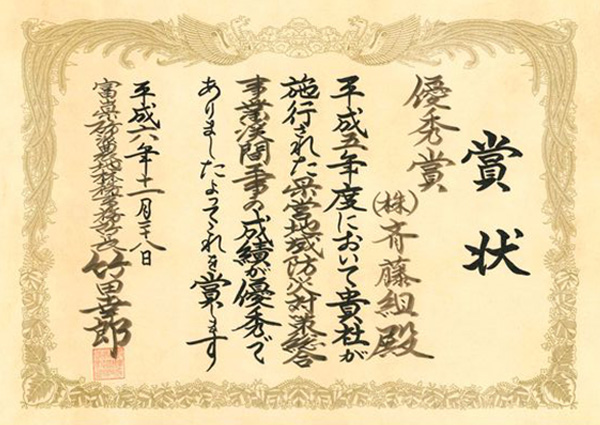 賞状
優秀賞
(株)斉藤組殿
平成五年度において貴社が
施行された県営地域防災対策総合
事業渓間工事の成績が優秀で
ありましたよってこれを賞します
平成六年十一月二十八日
竹田幸郎